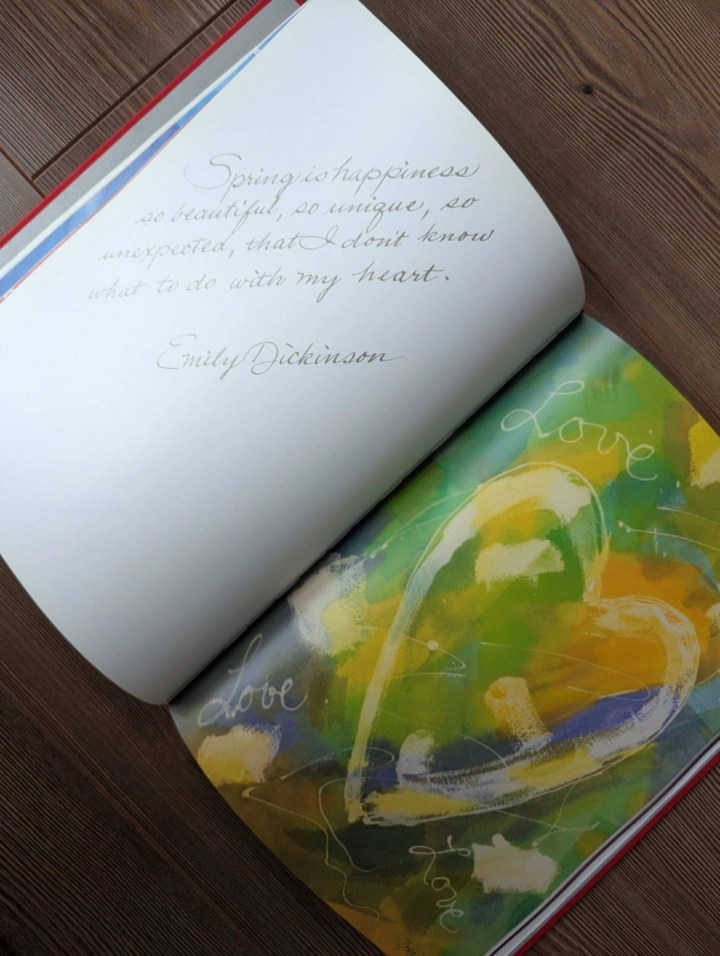 Spring is happiness
so beautiful, so unique, so
unexpected, that I don't know
what to do with my heart.
Emily Dickinson
Love
Love
Love